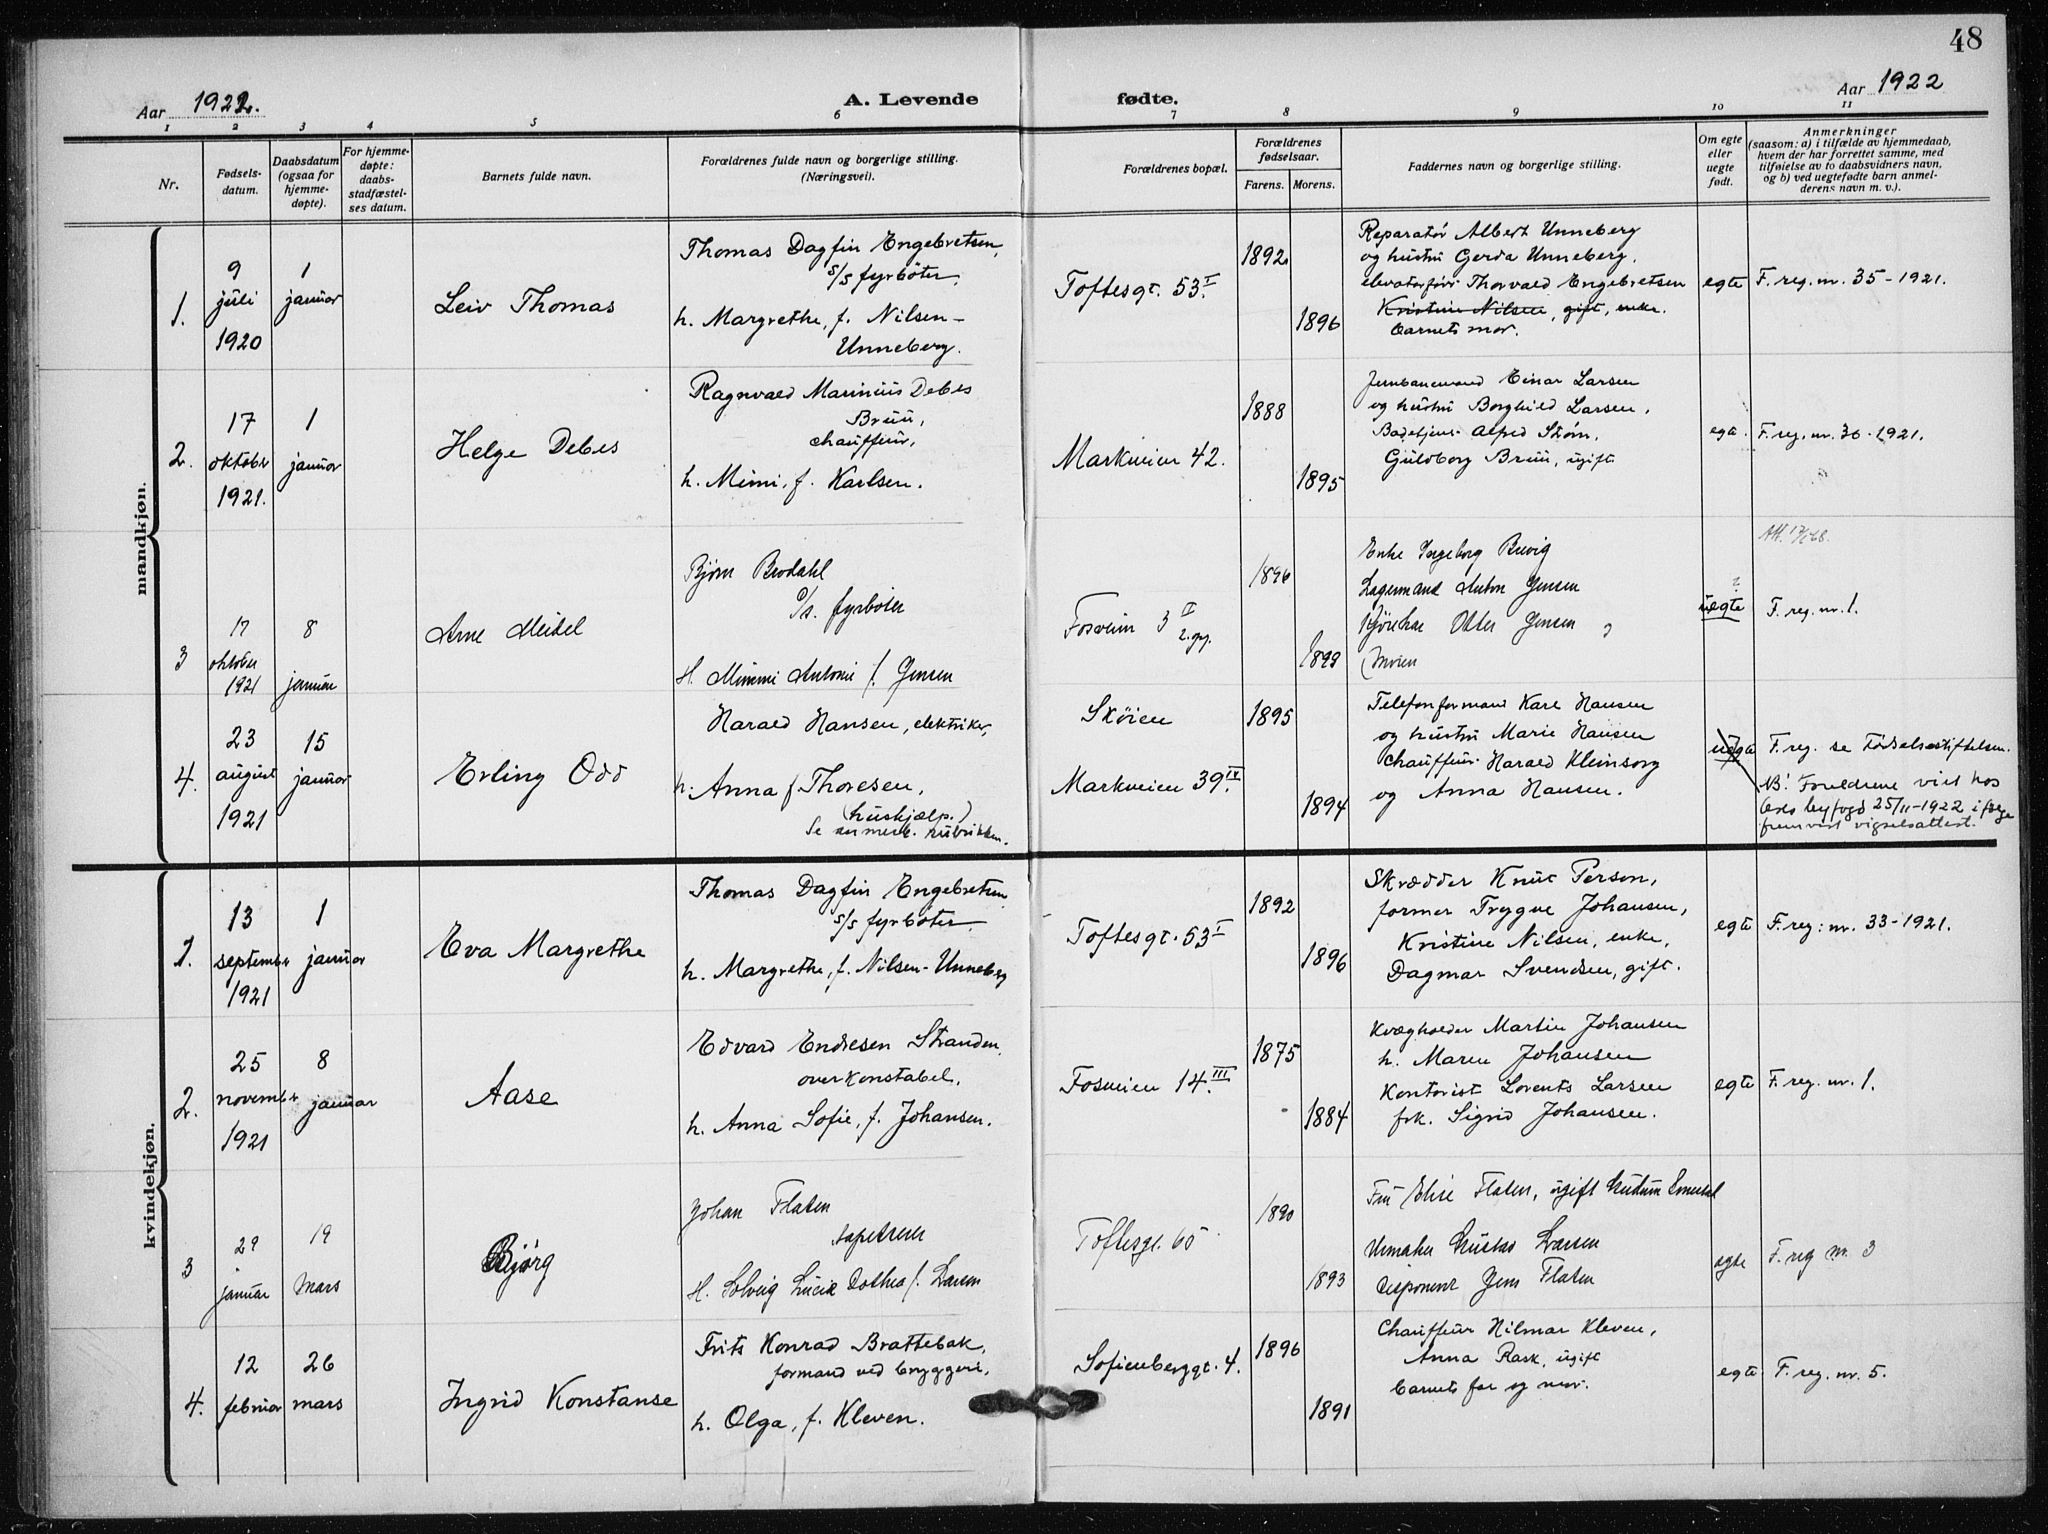 48
Aar 1922.
A. Levende
fødte.
Aar 1922
1 2 3 4 5 6 7 8 9 10 11
Nr.
Fødsels-
datum.
Daabsdatum
(ogsaa for
hjemme-
døpte).
For hjemme-
døpte:
daabs-
stadfæstel-
ses datum.
Barnets fulde navn.
Forældrenes fulde navn og borgerlige stilling.
(Næringsvei).
Forældrenes bopæl.
Forældrenes
fødselsaar.
Farens. Morens.
Faddernes navn og borgerlige stilling.
Om egte
eller
uegte
født.
Anmerkninger
(saasom: a) i tilfælde av hjemmedaab,
hvem der har forrettet samme, med
tilføielse av to daabsvidners navn,
og b) ved uegtefødte barn anmel-
derens navn m. v.).
mandkjøn.
1.
9
juli
1920
1
januar
Leiv Thomas
Thomas Dagfin Engebretsen,
s/s fyrbøter.
h. Margrethe, f. Nilsen-
Unneberg.
Toftesgt. 53 I.
1892
1896
Reparatør Albert Unneberg
og hustru Gerda Unneberg.
elevatorfører Thorvald Engebretsen
Kristine Nilsen, gift, enke.
barnets mor.
egte
F. reg. nr. 35 - 1921.
2.
17
oktober
1921.
1
januar
Helge Debes
Ragnvald Marinius Debes
Bruu,
chauffeur,
h. Mimi, f. Karlsen.
Markveien 42.
1888
1895
Jernbanemand Einar Larsen
og hustru Borghild Larsen,
Alfred Storm.
Guldborg Bruu, ugift
egte.
F. reg. nr. 36 - 1921.
3
17
oktober
1921
8
januar
Arne Meidel
Bjørn Brodahl
fyrbøter
H. Mimmi Antoni f. Jensen
Fosveien 3 II
2. opg.
1896
1899
Enke Ingeborg Bevig
Lagermand Anton Jensen
Otter Jensen
Moren
uegte
Att.
F. reg. nr. 1.
4.
23
august
1921
15
januar
Erling Odd
Harald Hansen, elektriker,
h. Anna f Thoresen,
(hushjælp.)
Se anmerk. rubrikken.
Skøien
Markveien 39 IV.
1895
1894
Telefonformand Kare Hansen
og hustru Marie Hansen
chauffeur Harald Kleinsorg
og Anna Hansen.
uegte
F. reg. se Fødselsstiftelsen.
NB! Forældrene viet hos
Oslo byfogd 25/11 - 1922 ifølge
fremvist vigselsattest.
kvindekjøn.
1.
13
september
1921
1
januar
Eva Margrethe
Thomas Dagfin Engebretsen
s/s fyrbøter.
h. Margrethe, f. Nilsen-Unneberg
Toftesgt. 53 I
1892
1896
Skrædder Knut Person,
former Trygve Johansen,
Kristine Nilsen, enke,
Dagmar Svendsen, gift.
egte
F. reg: nr. 33 - 1921.
2.
25
november
1921
8
januar
Aase
Edvard Endresen Stranden.
overkonstabel.
h. Anna Sofie, f. Johansen.
Fosveien 14 III.
1875
1884
Kvægholder Martin Johansen
h. Maren Johansen
Kontorist Lorents Larsen
frk. Sigrid Johansen.
egte
F. reg. nr. 1.
3
29
januar
19
Mars
Bjørg
Johan Flaten
tapetserer
H. Solveig Lucie Dothea f. Larsen
Toftesgt. 65
1890
1893
Fru Elise Flaten, ugift
Urmaker Gustav Larsen
disponent Jens Flaten
egte
F. reg nr. 3
4.
12
februar
26
mars
Ingrid Konstanse
Frits Konrad Brattebak,
formand ved bryggeri.
h. Olga, f. Kleven.
Sofienberggt. 4.
1896
1891
Chauffeur Hilmar Kleven,
Anna Rask, ugift
barnets far og mor.
egte
F. reg. nr. 5.